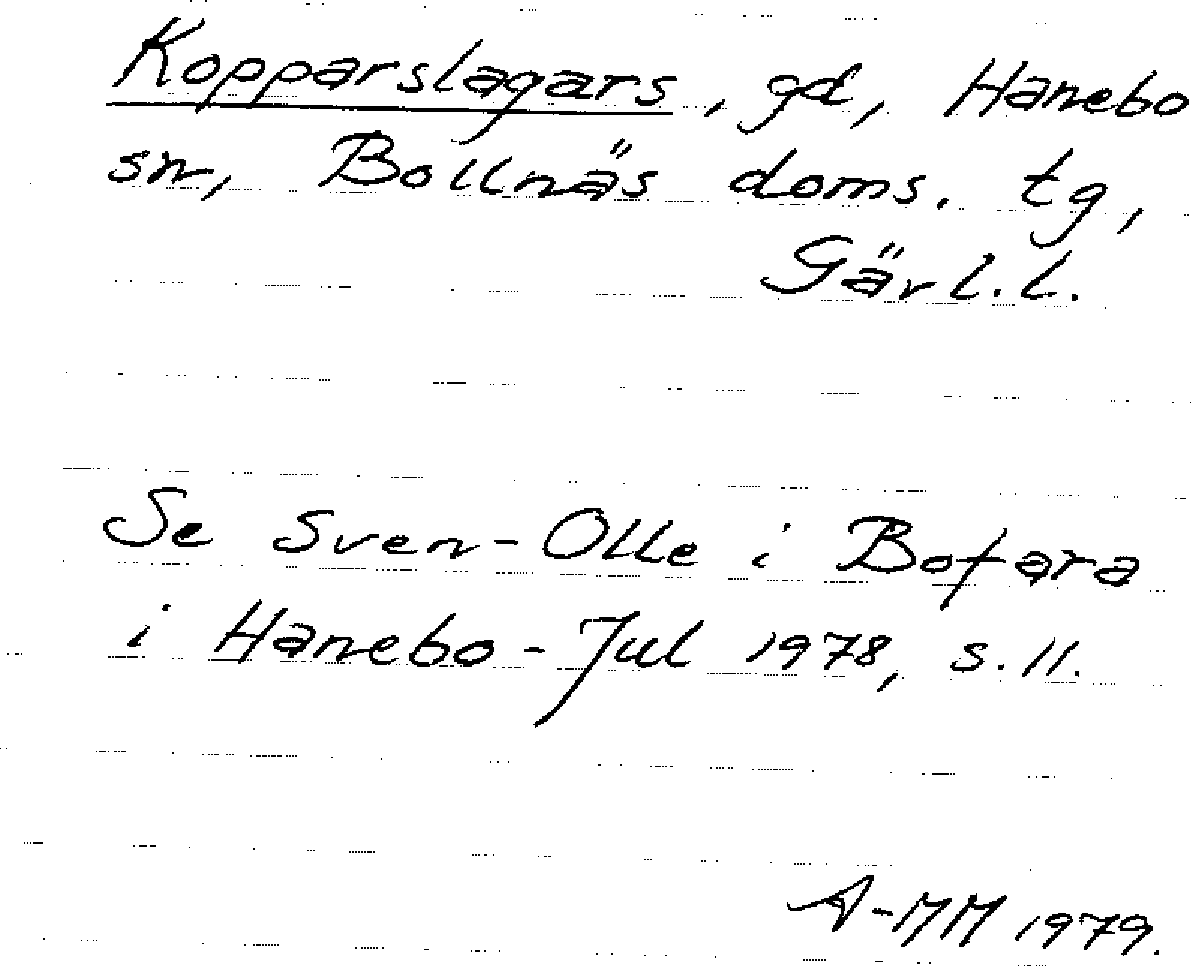 Kopparslagars, gd, Hanebo
sn, Bollnäs doms. tg,
Gävl.l.
Se Sven-Olle i Bofara
i Hanebo - Jul 1978, s. 11.
A-MM 1979.